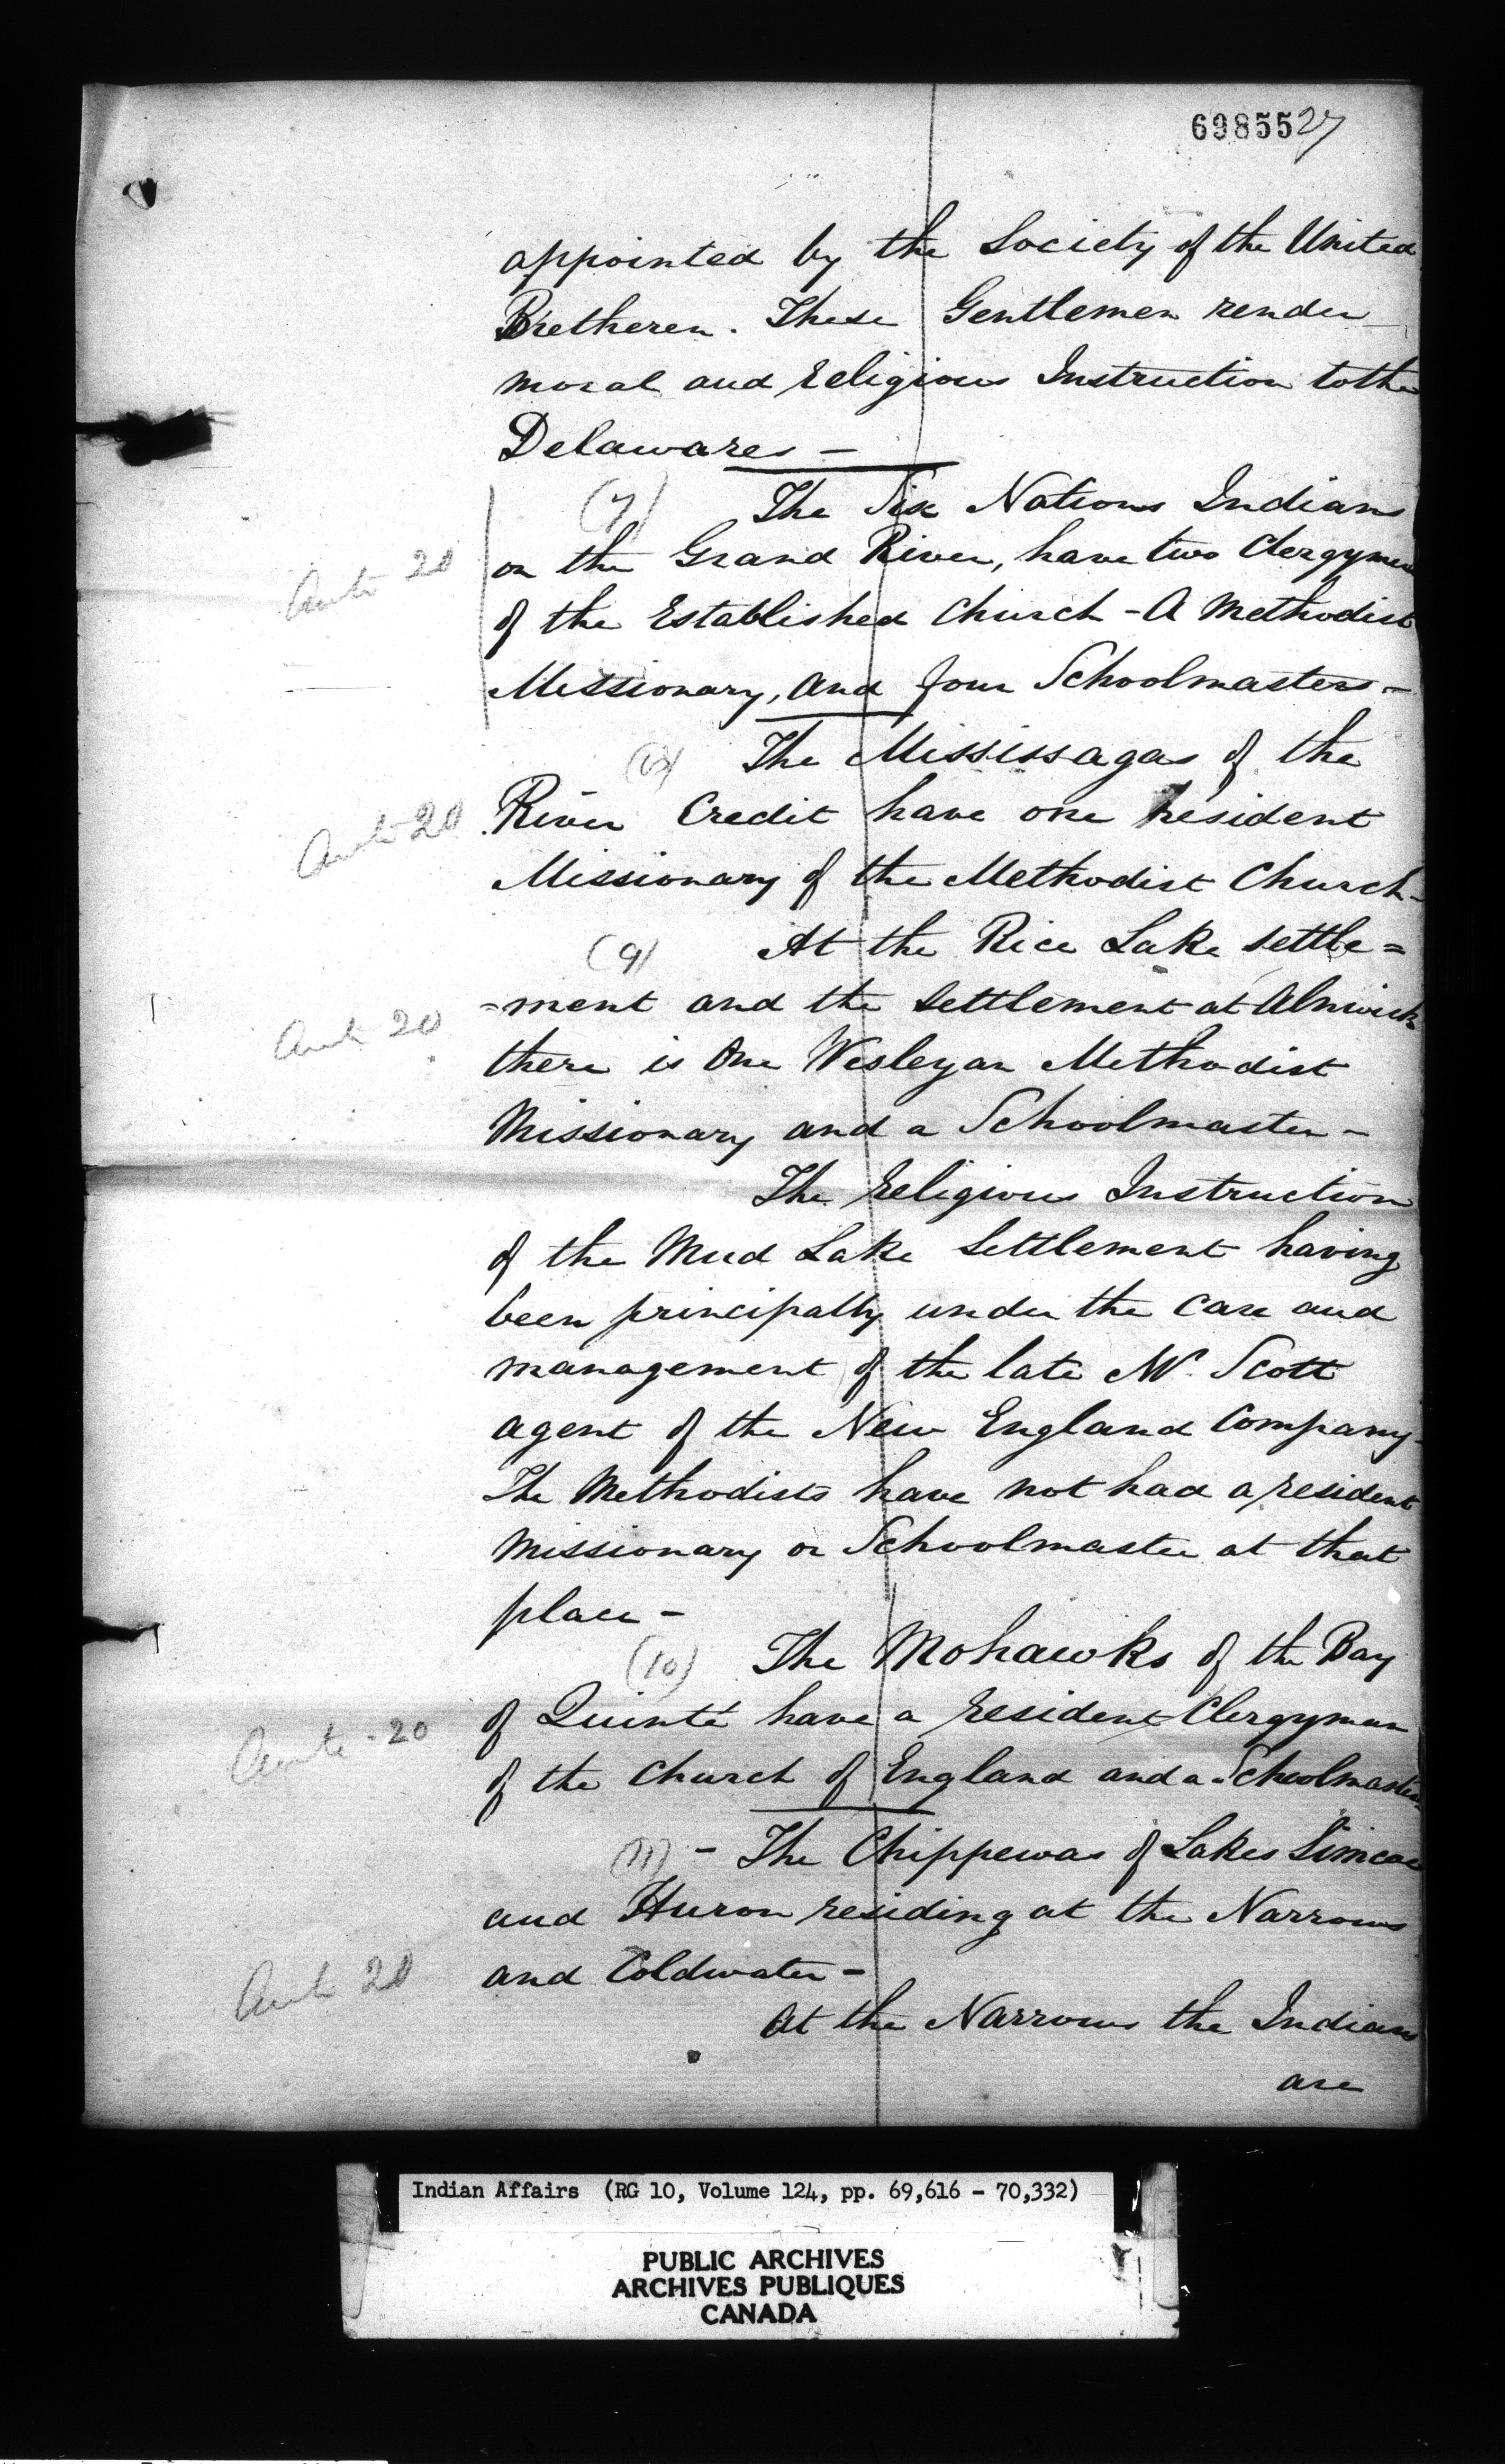 69855 27
appointed by the Society of the United
Bretheren. These Gentlemen render
moral and religious Instruction to the
Delawares -
(7) The Six Nations Indians
Ante 20
on the Grand River, have two Clergymen
of the Established Church - A Methodist
Missionary, and four Schoolmasters -
(8) The Mississagas of the
Ante 20
River Credit have one resident
Missionary of the Methodist Church -
(9) At the Rice Lake settle=
=ment and the settlement at Alnwick
Ante 20
there is One Wesleyan Methodist
Missionary and a Schoolmaster -
The religious Instruction
of the Mud Lake Settlement having
been principally under the care and
management of the late Mr. Scott
agent of the New England Company -
The Methodists have not had a resident
Missionary or Schoolmaster at that
place -
(10) The Mohawks of the Bay
Ante - 20
of Quinté have a resident Clergyman
of the Church of England and a Schoolmaster
(11) - The Chippewas of Lakes Simcoe
and Huron residing at the Narrows
Ante 20
and Coldwater -
At the Narrows the Indians
are
Indian Affairs (RG 10, Volume 124, pp. 69,616 - 70,332)
PUBLIC ARCHIVES
ARCHIVES PUBLIQUES
CANADA